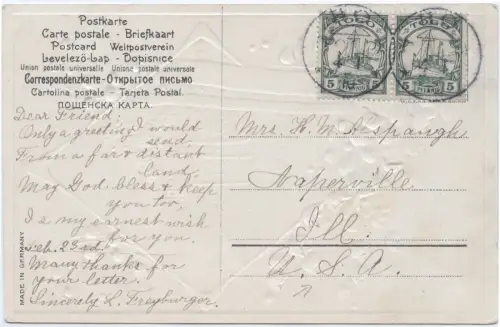 Postkarte
Carte postale - Briefkaart
Postcard Weltpostverein
Levelező-Lap - Dopisnice
Union postale universelle Unione postale universale
Correspondenzkarte - Открытое письмо
Cartolina postale - Tarjeta Postal.
ПОЩЕНСКА КАРТА.
Dear Friend;
Only a greeting I would
send
From a far & distant
land.
May God bless & keep
you too,
Is my earnest wish
for you.
Feb. 23rd
Many thanks for
your letter.
Sincerely L. Freyburger.
MADE IN GERMANY
TOGO
5 PFENNIG 5
TOGO
5 PFENNIG 5
Mrs. H. M. Alspaugh
Naperville
Ill.
U. S. A.